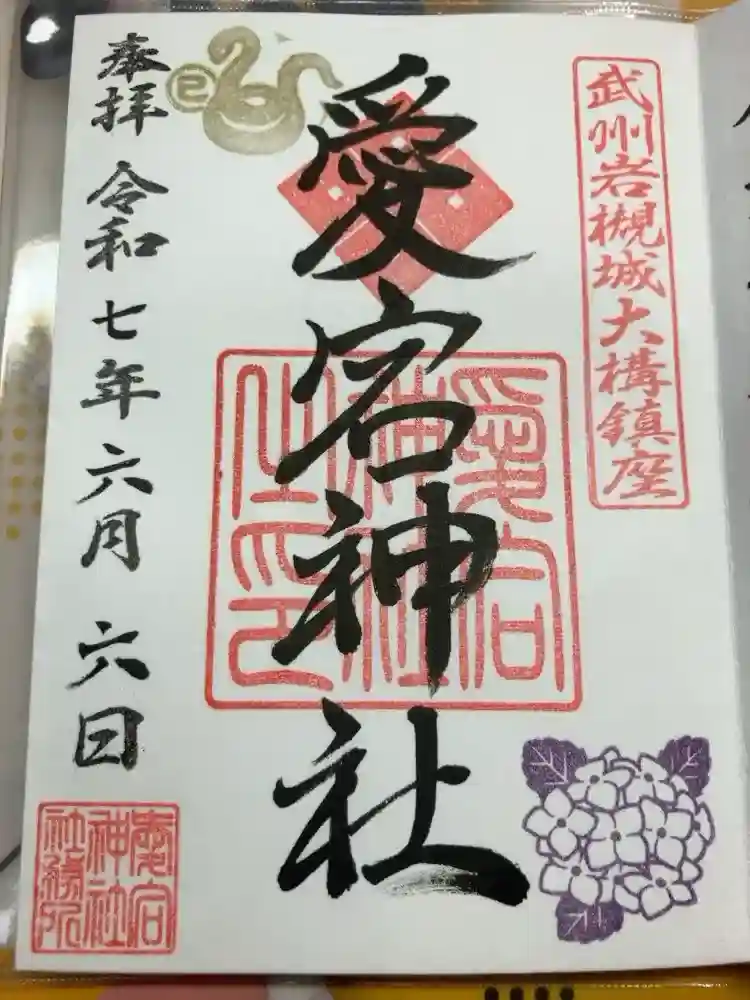 武州岩槻城大構鎮座
愛宕神社
愛宕
神社
之印
巳
奉拝 令和七年六月六日
愛宕
神社
社務所